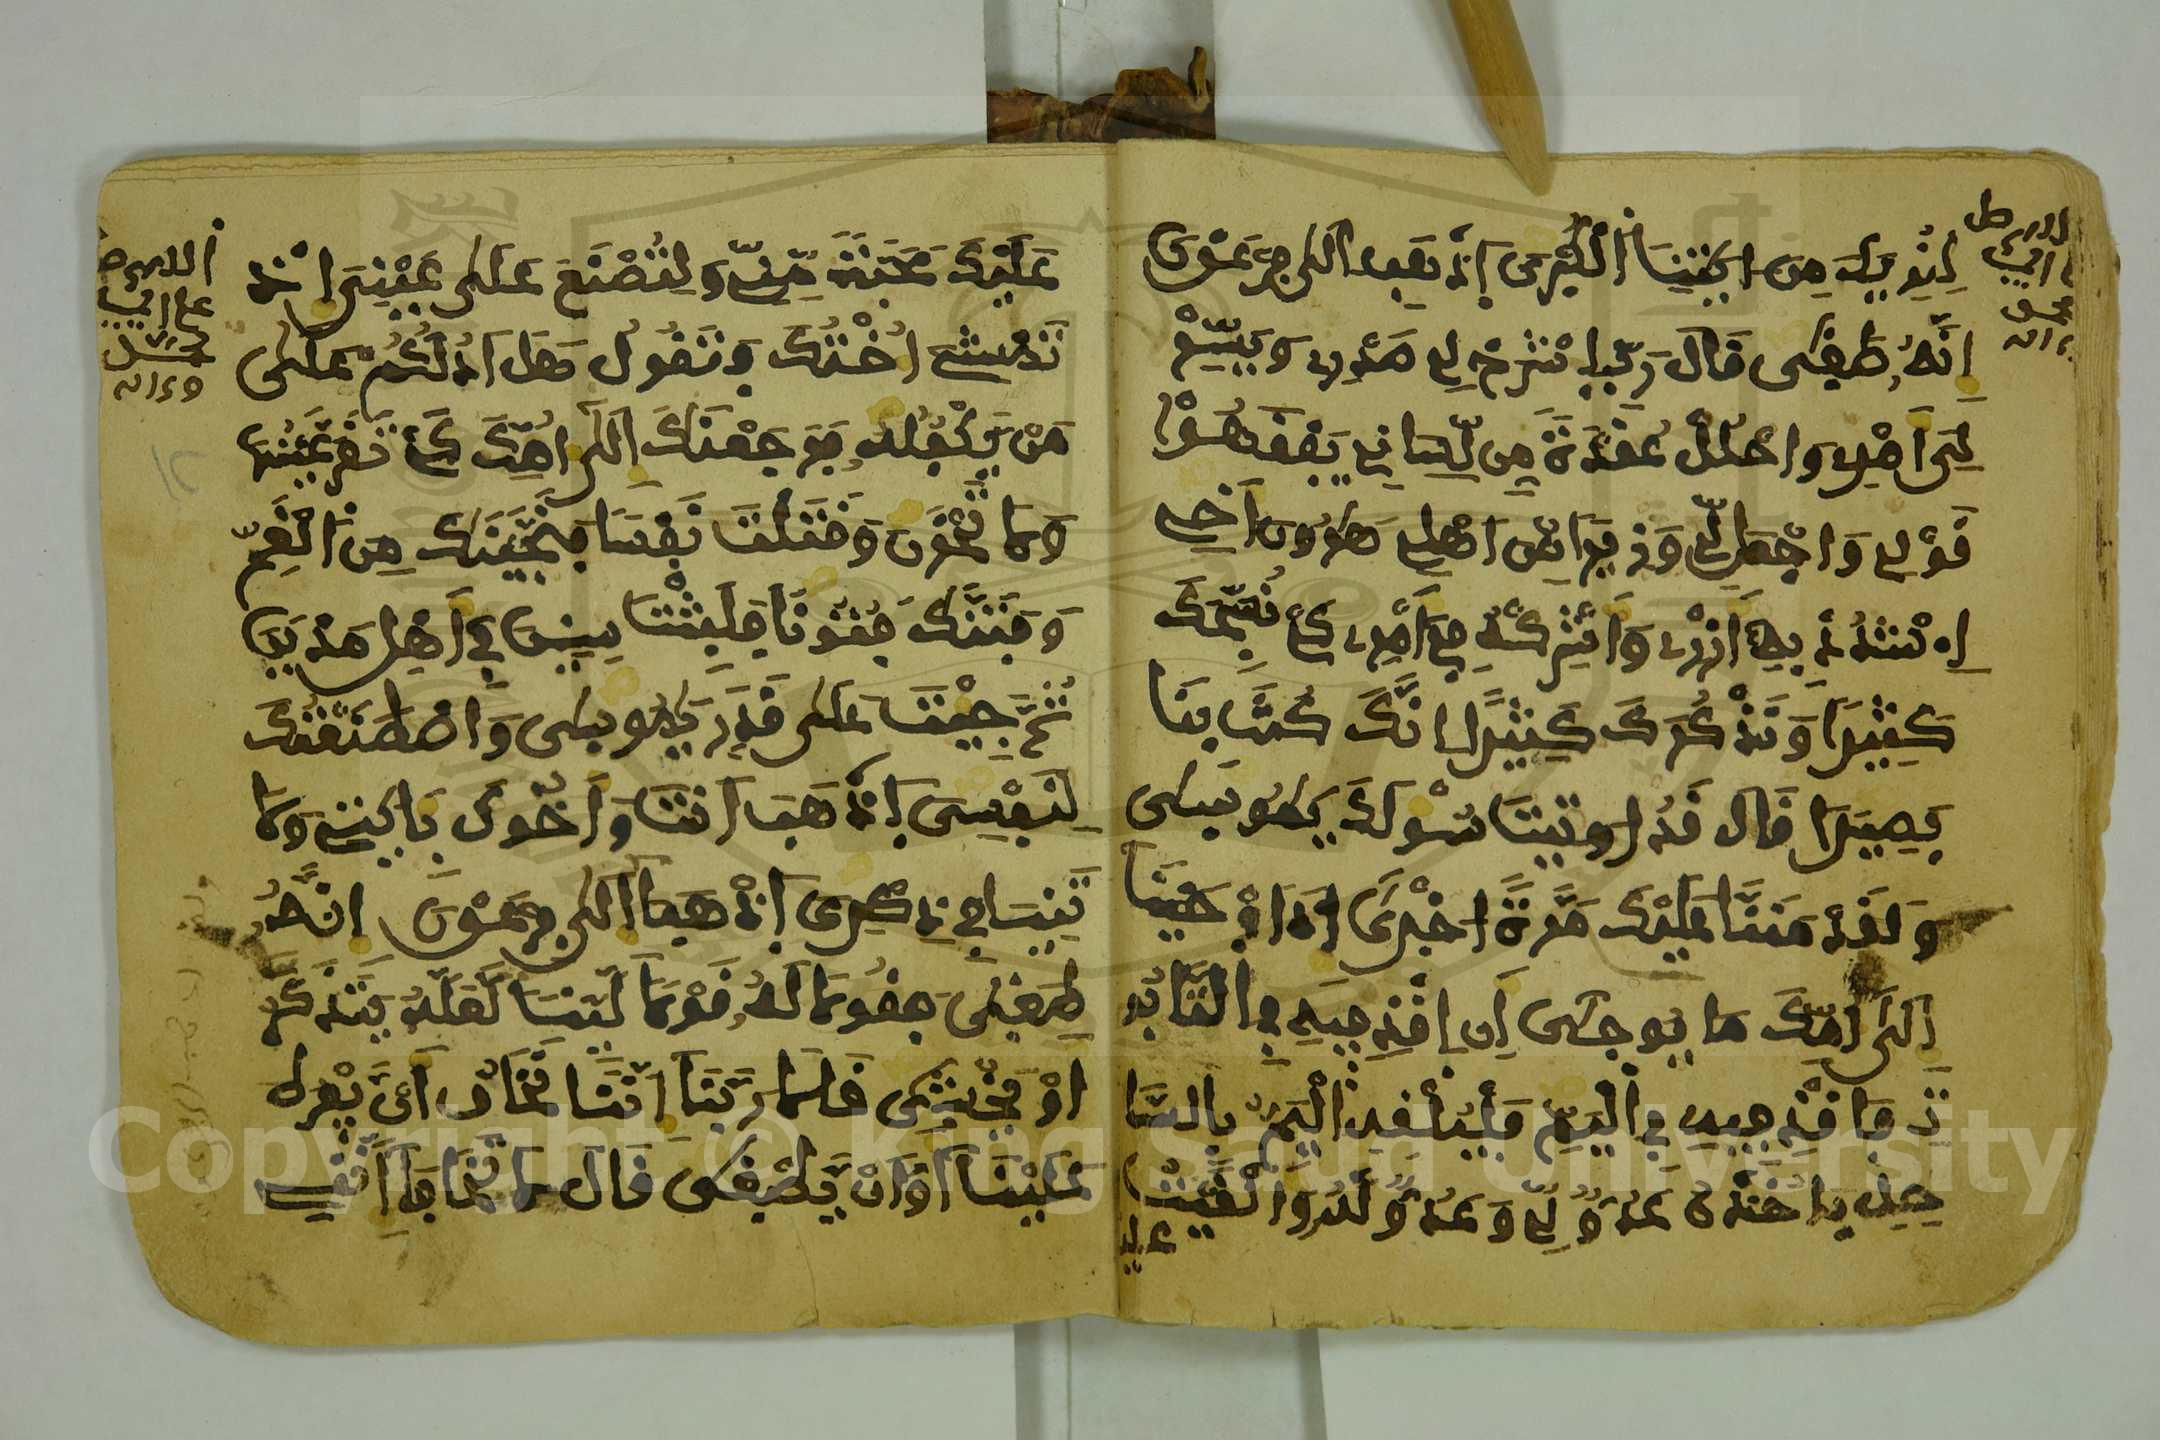 لِنُرِيَكَ مِنَ ايَتِنَا الْكُبْرَى اِذْهَبِ اِلَى فِرْعَوْنَ
اِنَّهُ طَغَى قَالَ رَبِّ اِشْرَحْ لِي صَدْرِي وَيَسِّرْ
لِي اَمْرِي وَاحْلُلْ عُقْدَةً مِن لِّسَانِي يَفْقَهُوا
قَوْلِي وَاجْعَل لِّي وَزِيرًا مِّنْ اَهْلِي هَرُونَ اَخِي
اِشْدُدْ بِهِ اَزْرِي وَاَشْرِكْهُ فِي اَمْرِي كَيْ نُسَبِّحَكَ
كَثِيرًا وَنَذْكُرَكَ كَثِيرًا اِنَّكَ كُنتَ بِنَا
بَصِيرًا قَالَ قَدُ اوتِيتَ سُؤْلَكَ يَمُوسَى
وَلَقَدْ مَنَنَّا عَلَيْكَ مَرَّةً اخْرَى اِذَ اَوْحَيْنَا
اِلَى اُمِّكَ مَا يُوحَى اَنِ اِقْذِفِيهِ فِي التَّابُو
تِ فَاقْذِفِيهِ فِي الْيَمِّ فَلْيُلْقِهِ الْيَمُّ بِالسَّا
حِلِ يَاخُذْهُ عَدُوٌّ لِّي وَعَدُوٌّ لَّهُ وَاَلْقَيْتُ
عليك
عَلَيْكَ مَحَبَّةً مِّنِّي وَلِتُصْنَعَ عَلَى عَيْنِيَ اِذْ
تَمْشِي اُخْتُكَ فَتَقُولُ هَلَ اَدُلُّكُمْ عَلَى
مَنْ يَكْفُلُهُ فَرَجَعْنَكَ اِلَى اُمِّكَ كَيْ تَقَرَّ عَيْنُهَا
وَلَا تَحْزَنَ وَقَتَلْتَ نَفْسًا فَنَجَّيْنَكَ مِنَ الْغَمِّ
وَفَتَنَّكَ فُتُونًا فَلَبِثْتَ سِنِينَ فِي اَهْلِ مَدْيَنَ
ثُمَّ جِيْتَ عَلَى قَدَرٍ يَمُوسَى وَاصْطَنَعْتُكَ
لِنَفْسِيَ اِذْهَبَ اَنتَ وَاَخُوكَ بِايَتِي وَلَا
تَنِيَا فِي ذِكْرِيَ اِذْهَبَا اِلَى فِرْعَوْنَ اِنَّهُ
طَغَى فَقُولَا لَهُ قَوْلًا لَّيِّنًا لَّعَلَّهُ يَتَذَكَّرُ
اَوْ يَخْشَى قَالَا رَبَّنَا اِنَّنَا نَخَافُ اَنْ يَفْرُطَ
عَلَيْنَا اَوَ اَنْ يَطْغَى قَالَ لَا تَخَافَا اِنَّنِي